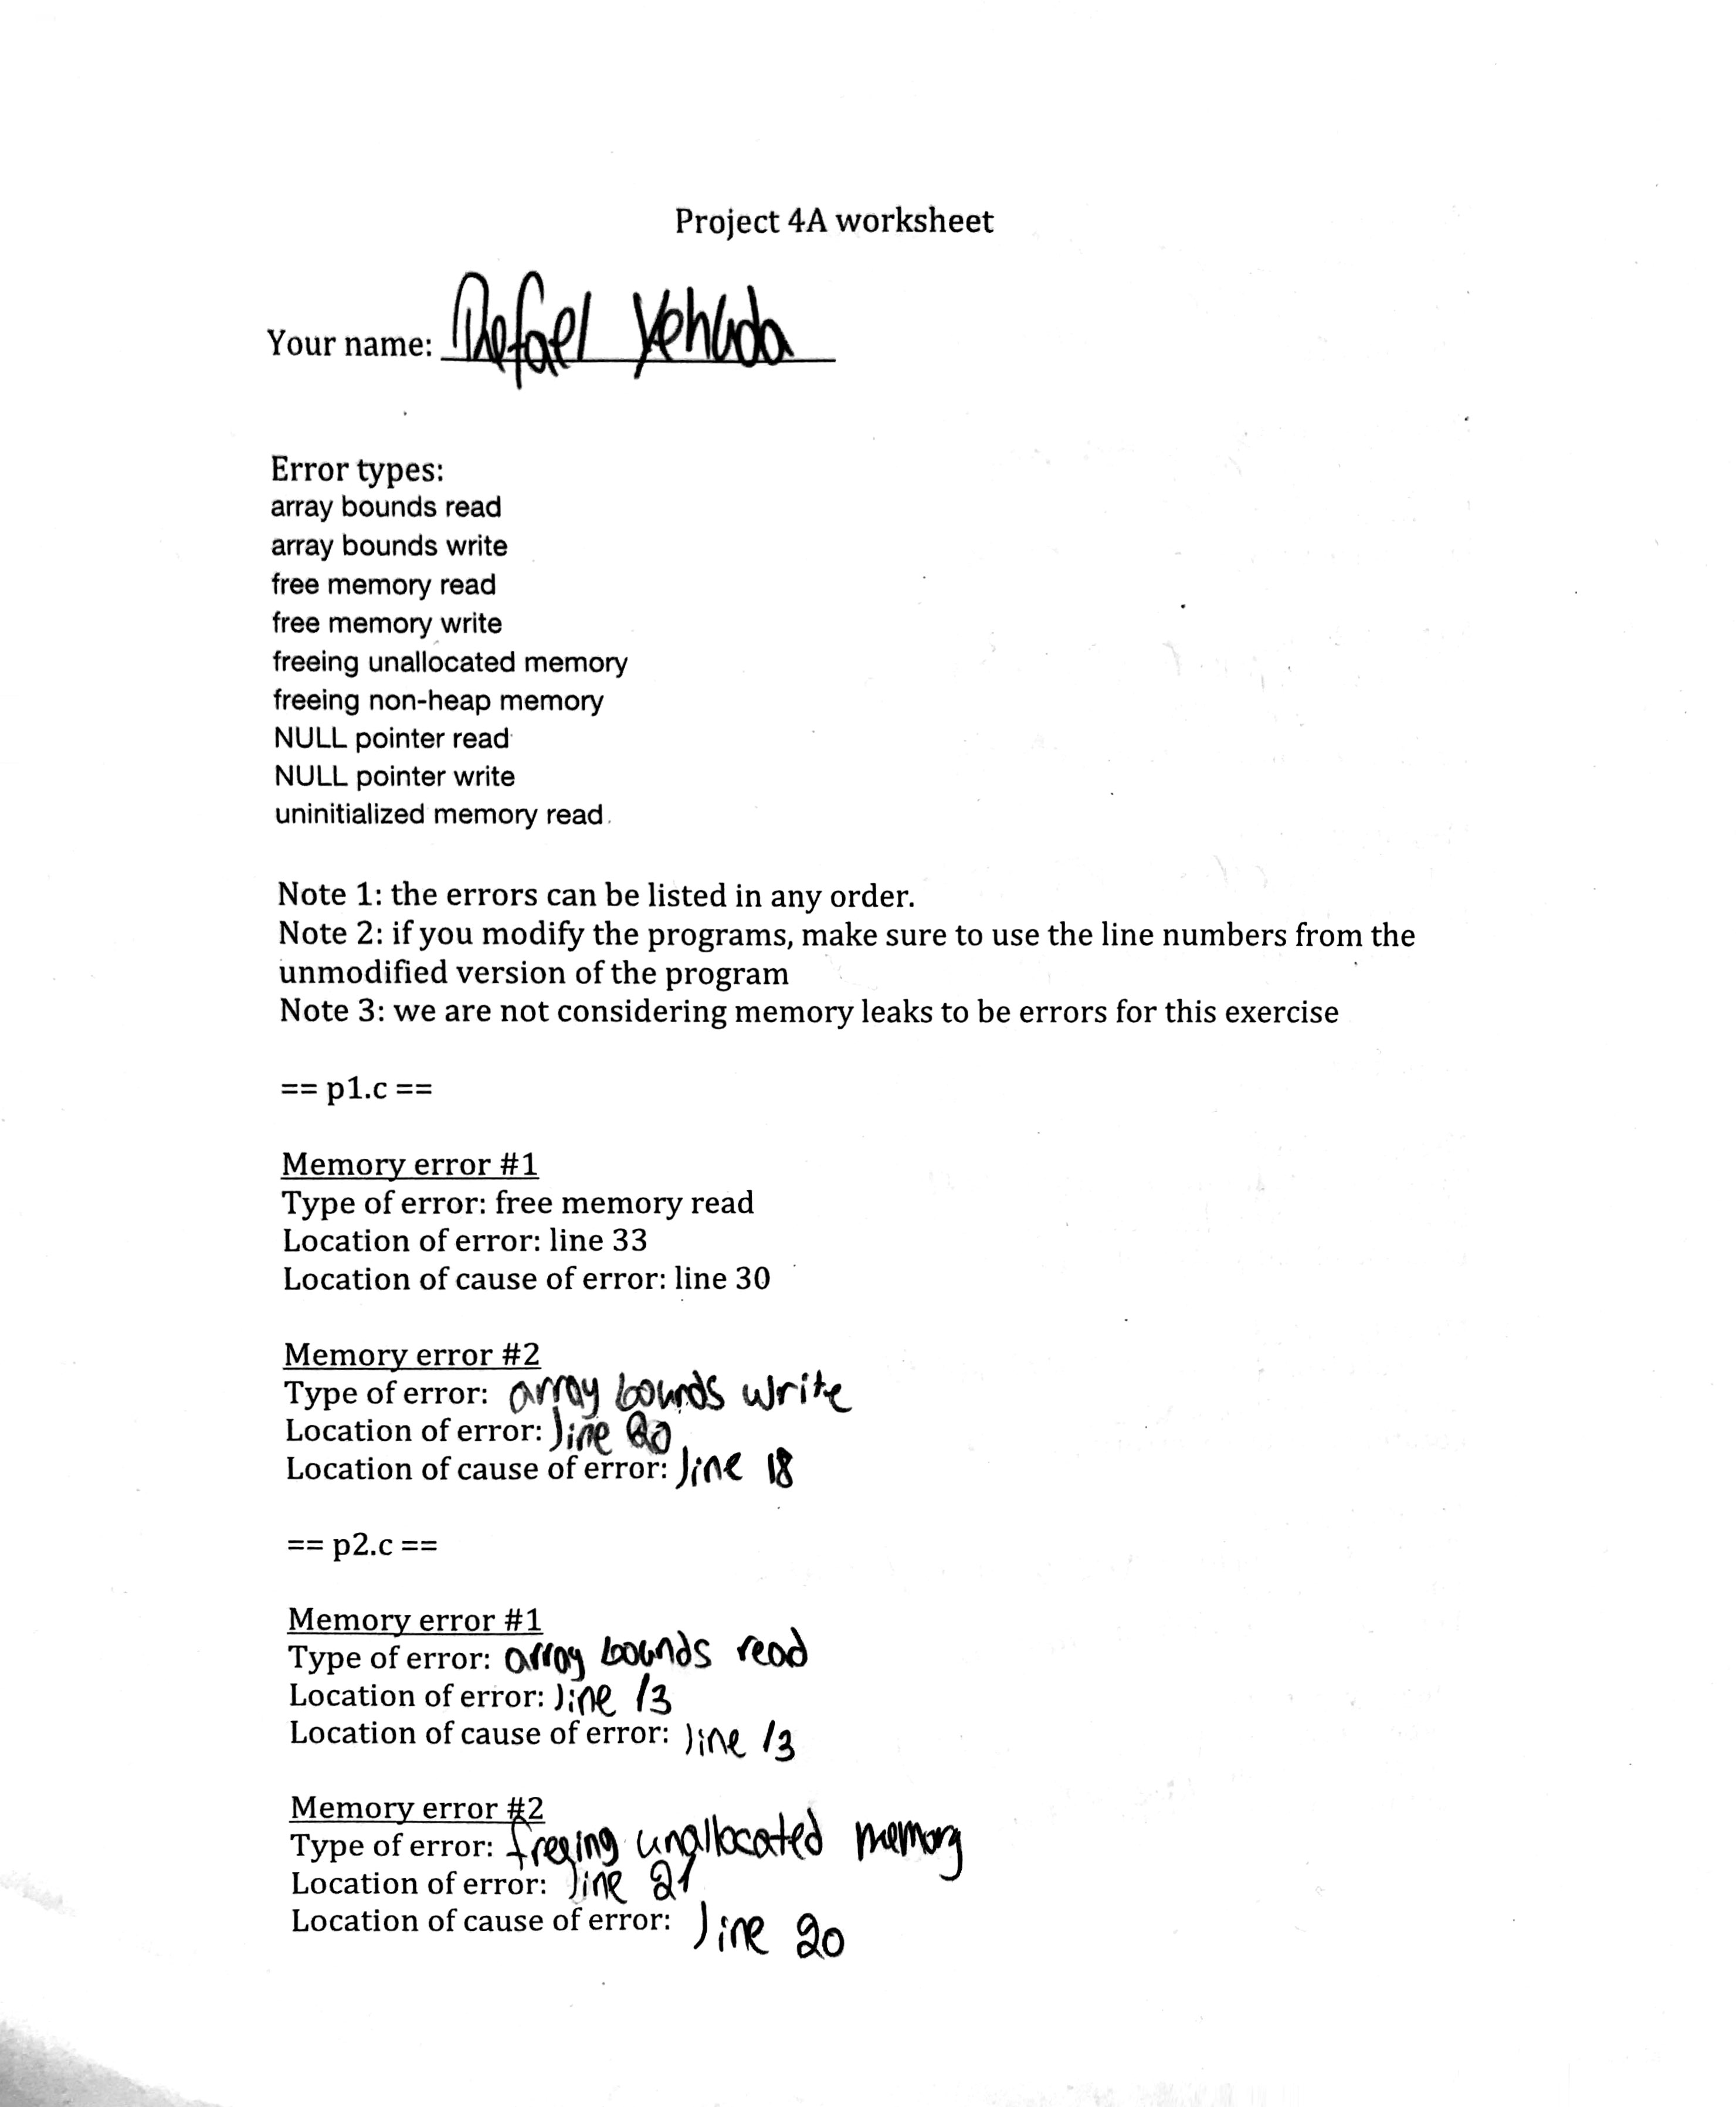 Project 4A worksheet
Your name: Refael Yehuda
Error types:
array bounds read
array bounds write
free memory read
free memory write
freeing unallocated memory
freeing non-heap memory
NULL pointer read
NULL pointer write
uninitialized memory read
Note 1: the errors can be listed in any order.
Note 2: if you modify the programs, make sure to use the line numbers from the
unmodified version of the program
Note 3: we are not considering memory leaks to be errors for this exercise
== p1.c ==
Memory error #1
Type of error: free memory read
Location of error: line 33
Location of cause of error: line 30
Memory error #2
Type of error: array bounds write
Location of error: line 20
Location of cause of error: line 18
== p2.c ==
Memory error #1
Type of error: array bounds read
Location of error: line 13
Location of cause of error: line 13
Memory error #2
Type of error: freeing unallocated memory
Location of error: line 21
Location of cause of error: line 20